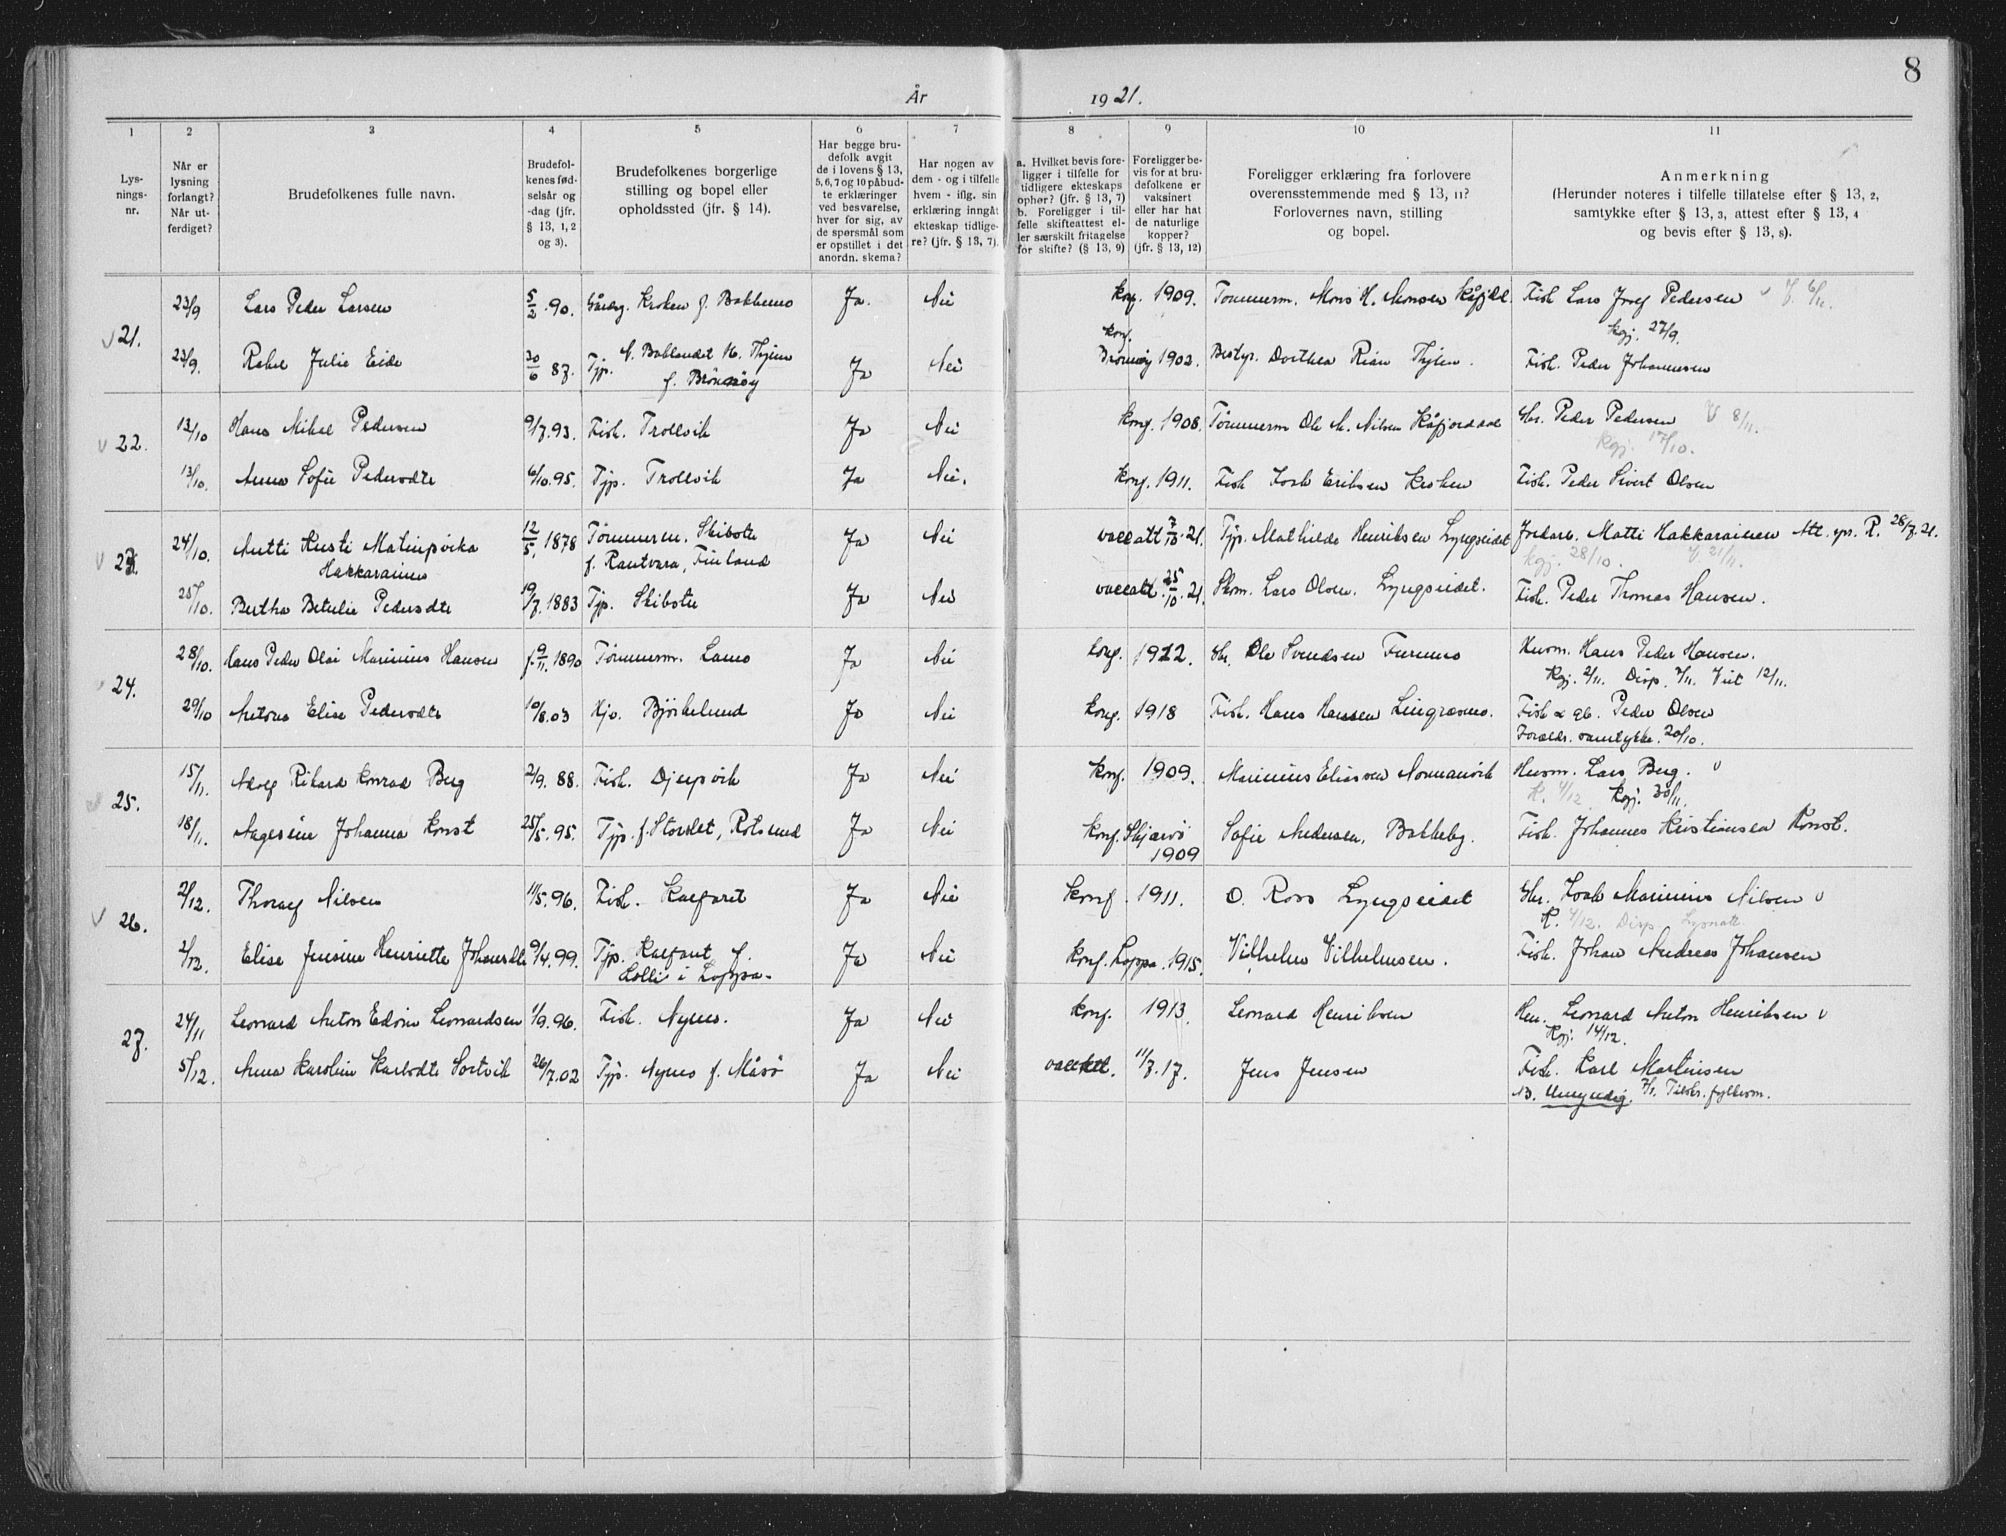 8
År 1921.
1 2 3 4 5 6 7 8 9 10 11
Lys-
nings-
nr.
Når er
lysning
forlangt?
Når ut-
ferdiget?
Brudefolkenes fulle navn.
Brudefol-
kenes fød-
selsår og
-dag (jfr.
§ 13, 1, 2
og 3).
Brudefolkenes borgerlige
stilling og bopel eller
opholdssted (jfr. § 14).
Har begge bru-
defolk avgit
de i lovens § 13,
5, 6, 7 og 10 påbud-
te erklæringer
ved besvarelse,
hver for sig, av
de spørsmål som
er opstillet i det
anordn. skema?
Har nogen av
dem - og i tilfelle
hvem - iflg. sin
erklæring inngåt
ekteskap tidlige-
re? (jfr. § 13, 7).
a. Hvilket bevis fore-
ligger i tilfelle for
tidligere ekteskaps
ophør? (jfr. § 13, 7)
b. Foreligger i til-
felle skifteattest el-
ler særskilt fritagelse
for skifte? (§ 13, 9)
Foreligger be-
vis for at bru-
defolkene er
vaksinert
eller har hat
de naturlige
kopper?
(jfr. § 13, 12)
Foreligger erklæring fra forlovere
overensstemmende med § 13, 11?
Forlovernes navn, stilling
og bopel.
Anmerkning
(Herunder noteres i tilfelle tillatelse efter § 13, 2,
samtykke efter § 13, 3, attest efter § 13, 4
og bevis efter § 13, 8).
21. 23/9 Lars Peder Larsen 5/2.90. Gårdbr. Kroken f. Bakkemo Ja. Nei konf. 1909. Tømmerm. Mons H. Monsen Kåfjdl. Fisk Lars Josef Pedersen V. 6/11.
kgj. 27/9.
23/9. Rakel Julie Eide 20/6 87. Tjp. N. Balsndet f. Brönnöy Ja Nei konf. Brönnöy 1902. Bestyr. Dorthea Rian Fisk. Peder Johannesen
22. 13/10 Hans Mikel Pedersen 9/7.93. Fisk. Trollvik Ja Nei konf. 1908. Tømmerm Ole M. Nilsen Kåfjorddal Gbr. Peder Pedersen V 8/11.
kgj. 17/10.
13/10. Anna Sofie Pedersdtr 6/10.95. Tjp. Trollvik Ja Nei. konf. 1911. Fisk Isak Eriksen Kroken Fisk. Peder Sivert Olsen
23. 24/10. Antti Kusti 12/5.1878 Tømmerm. Skibotn Ja Nei vaccatt 7/10.21. Tjp. Mathilde Henriksen Lyngseidet Jordarb. Matti Hakkarainen Att. sps. R. 28/7.21.
Hakkarainen f. Rautvara, Finland kgj. 28/10. V. 21/11.
25/10. Bertha Betulie Pedersdtr 19/7.1883 Tjp. Skibotn Ja Nei vaccatt. 25/10.21. Skom. Lars Olsen. Lyngseidet. Fisk. Peder Thomas Hansen.
24. 28/10. Hans Peder Olai Marinius Hansen f. 9/11.1890 Tømmerm. Ja Nei konf. 1912. Gbr. Ole Svendsen Furumo Husm. Hans Peder Hansen.
Kgj. 2/11. Disp. Viet 12/11.
29/10 Antona Elise Pedersdtr 10/8.03 Hjv. Björkelund Ja Nei konf. 1918 Fisk. Hans Hanssen Fisk & gb. Peder Olsen
Foreldr. samtykke. 20/10.
25. 15/11. Adolf Rikard Konrad Berg 2/9.88. Fisk. Djupvik Ja Nei konf. 1909. Marinius Eliassen Normanvik Husm. Lars Berg.
R. 4/12 Kgj. 30/11.
18/11. Aagesine Johanna Konst 25/5.95. Tjp. f. Storslet, Rotsund Ja Nei konf. Skjærvö 1909 Sofie Andersen, Bakkeby. Fisk. Johannes Kristiansen Konst.
26. 2/12. Thoralf Nilsen 11/5.96. Fisk. Ja Nei konf. 1911. O. Ross Lyngseidet Gbr. Isak Marinius Nilsen
R. 4/12. Disp Lysnatt
2/12. Elise Jensine Henriette Johansdtr 9/4.99. Tjp. f. Lolli i Loppa. Ja Nei konf. Loppa. 1915. Vilhelm Vilhelmsen. Fisk. Johan Andreas Johansen
27. 24/11 Leonard Anton Edvin Leonardsen 1/9.96. Fisk. Nynes. Ja Nei konf. 1913. Leonard Henriksen Leonard Anton Henriksen
Kgj. 14/12.
5/12. Anna Karoline Karlsdtr Sortvik 26/7.02 Tjp. Nynes f. Måsö Ja Nei 11/7.17. Jens Jensen Fisk. Karl Martinsen
NB. Umyndig. Tilskr. fylkesm.